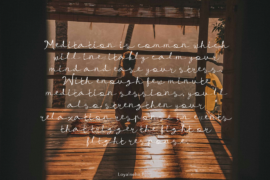 Meditation is common which
will inevitably calm your
mind and ease your stress.
With enough few minutes
meditation sessions, you'll
also strengthen your
relaxation response in events
that trigger the fight or
flight response.